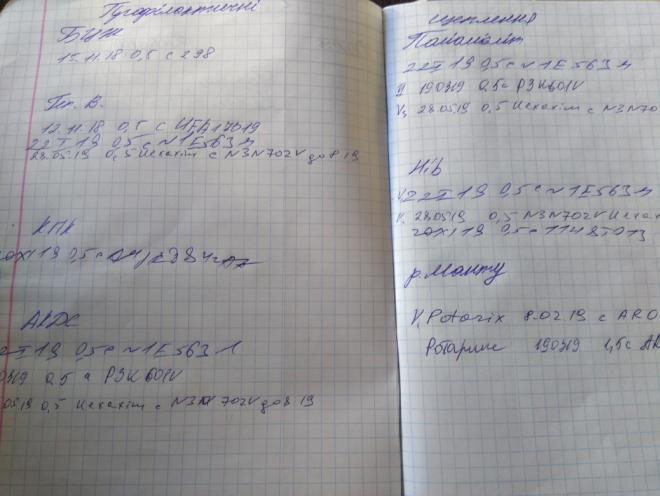 Профілактичні
БЦЖ
15.11.18 0,5 с 298
Геп. В.
12.11.18 0,5 с UFA17019
22 I 19 0,5 с N1E563M
28.05.19 0,5 Hexaxim с N3N702V до 8 19
КПК
20XI 19 0,5 с
АКДС
22 I 19 0,5 с N1E563
0,5 с P3K601V
05 19 0,5 Hexaxim с N3N702V до 8 19
щеплення
Поліомієліт
22 I 19 0,5 с N1E563M
II 190319 0,5 с P3K601V
V3 28.05.19 0,5 Hexaxim с N3N70
Hib
V 22 I 19 0,5 с N1E563M
V 280519 0,5 N3N702V Hexaxi
20XI 19 0,5 с
р. Манту
V, Rotarix 8.02.19 с ARO
Ротарикс 190319 1,5 с AR